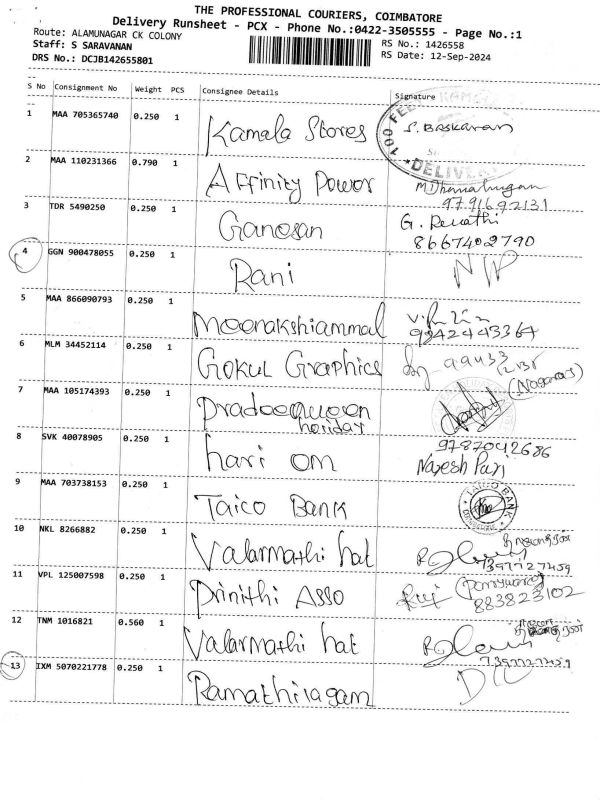 THE PROFESSIONAL COURIERS, COIMBATORE
Delivery Runsheet - PCX - Phone No.:0422-3505555 - Page No.:1
Route: ALAMUNAGAR CK COLONY
Staff: S SARAVANAN
DRS No.: DCJB142655801
RS No.: 1426558
RS Date: 12-Sep-2024
S No Consignment No Weight PCS Consignee Details Signature
1 MAA 705365740 0.250 1 Kamala Stores S. Baskaran
DELIVERY
2 MAA 110231366 0.790 1 Affinity Power
9791692131
3 TDR 5490250 0.250 1 Ganesan G. Revathi
8667402790
4 GGN 900478055 0.250 1 Rani
5 MAA 866090793 0.250 1 Meenakshiammal
9842443364
6 MLM 34452114 0.250 1 Gokul Graphics
(Nagaraj)
7 MAA 105174393 0.250 1 Pradeequeen
holiday
9787042686
8 SVK 40078905 0.250 1 hari om Nagesh
9 MAA 703738153 0.250 1 Taico Bank
TAICO BANK
10 NKL 8266882 0.250 1 Valarmathi hat
7397727459
11 VPL 125007598 0.250 1 Prinithi Asso
883823102
12 TNM 1016821 0.560 1 Valarmathi hat
7397727459
13 IXM 5070221778 0.250 1 Ramathilagam